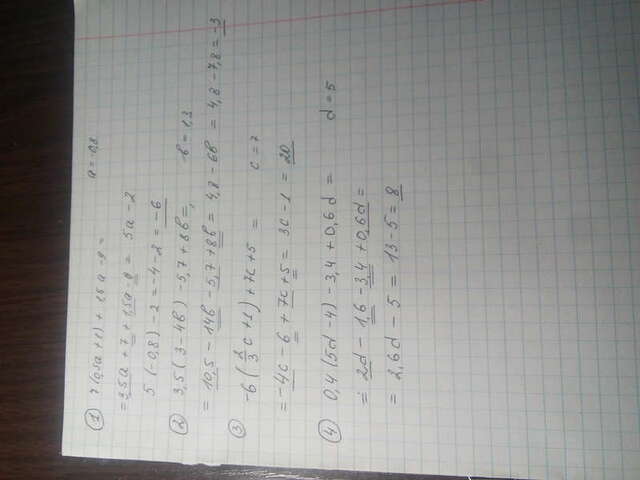 ① 7(0,5a+1) + 1,5a - 9 = a = -0,8
= 3,5a + 7 + 1,5a - 9 = 5a - 2
5(-0,8) - 2 = -4 - 2 = -6
② 3,5(3 - 4b) - 5,7 + 8b =, b = 1,3
= 10,5 - 14b - 5,7 + 8b = 4,8 - 6b = 4,8 - 7,8 = -3
③ -6(2/3c + 1) + 7c + 5 = c = 7
= -4c - 6 + 7c + 5 = 3c - 1 = 20
④ 0,4(5d - 4) - 3,4 + 0,6d = d = 5
= 2d - 1,6 - 3,4 + 0,6d =
= 2,6d - 5 = 13 - 5 = 8